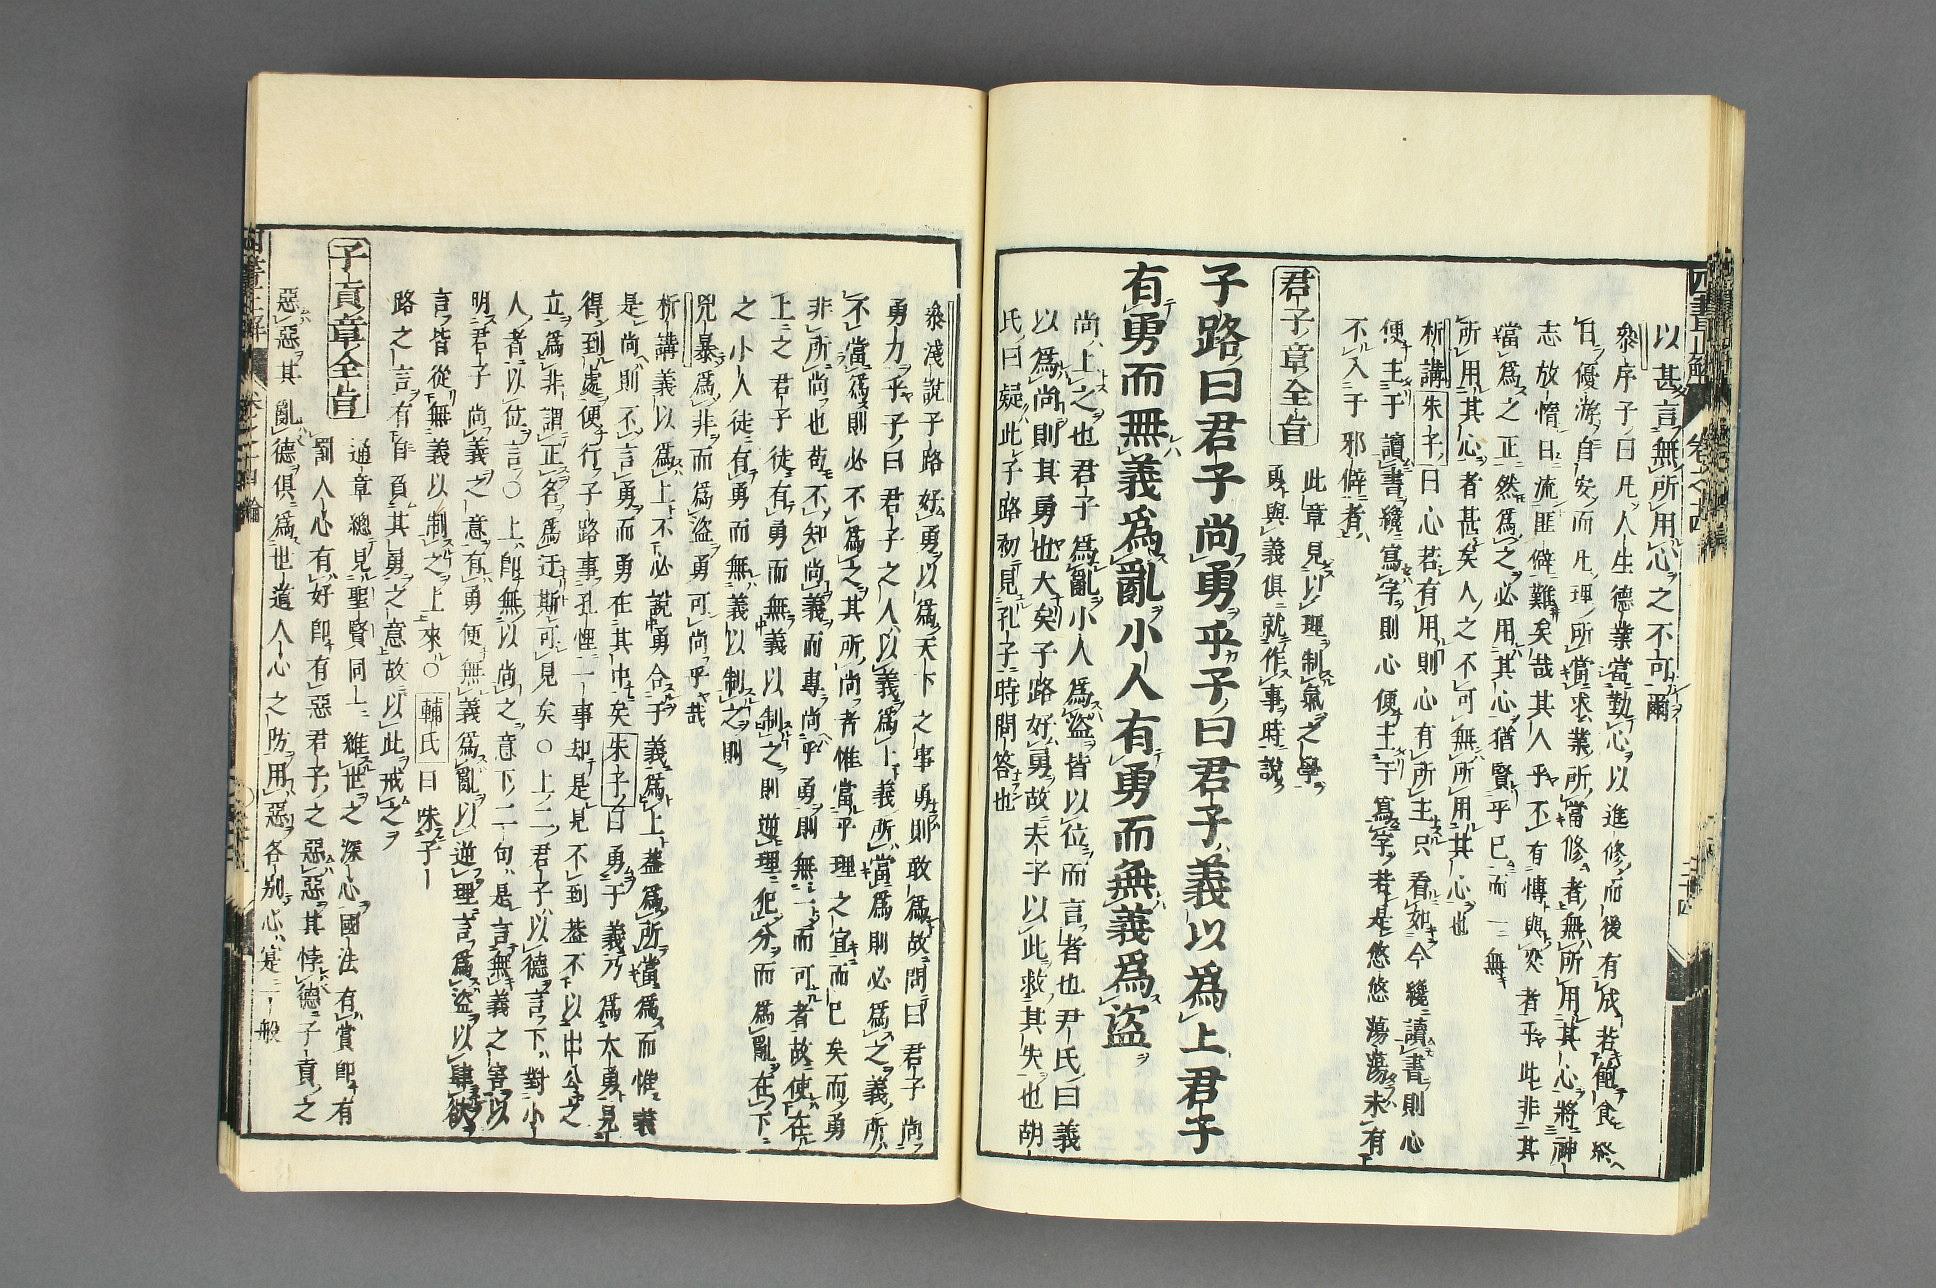 以甚言無所用心之不可爾
參序子曰凡人生德業當勤心以進修而後有成若飽食終
日優游自安而凡理所當求業所當修者無所用其心將神
志放惰日流匪僻難矣哉其人乎不有博與奕者乎此非其
當為之正然為之必用其心猶賢乎已而一無
所用其心者甚矣人之不可無所用其心也
析講朱子曰心若有用則心有所主只看如今纔讀書則心
便主于讀書纔寫字則心便主于寫字若是悠悠蕩蕩未有
不入于邪僻者
君子章全旨
此章見以理制氣之學
勇與義俱就作事時說
子路曰君子尚勇乎子曰君子義以為上君子
有勇而無義為亂小人有勇而無義為盜
尚上之也君子為亂小人為盜皆以位而言者也尹氏曰義
以為尚則其勇也大矣子路好勇故夫子以此救其失也胡
氏曰疑此子路初見孔子時問答也
參淺說子路好勇以為天下之事勇則敢為故問曰君子尚
勇力乎子曰君子之人以義為上義所當為則必為之義所
不當為則必不為之其所尚者惟當乎理之宜而已矣而勇
非所尚也苟不知尚義而專尚乎勇則無一而可者故使在
上之君子徒有勇而無義以制之則逆理犯分而為亂在下
之小人徒有勇而無義以制之則
兇暴為非而為盜勇可尚乎哉
析講義以為上不必說勇合于義為上蓋為所當為而惟義
是尚則不言勇而勇在其中矣朱子曰勇于義乃為大勇見
得到處便行子路事孔悝一事却是見不到蓋不以出公之
立為非謂正名為迂斯可見矣○上二君子以德言下對小
人者以位言○上即無以尚之意下二句是言無義之害以
明君子尚義之意有勇便無義為亂以逆理言為盜以肆欲
言皆從無義以制之上來○輔氏曰味子
路之言有自負其勇之意故以此戒之
子貢章全旨
通章總見聖賢同上維世之深心國法有賞即有
罰人心有好即有惡君子之惡惡其悖德子貢之
惡惡其亂德俱為世道人心之防用惡各別心寔一般